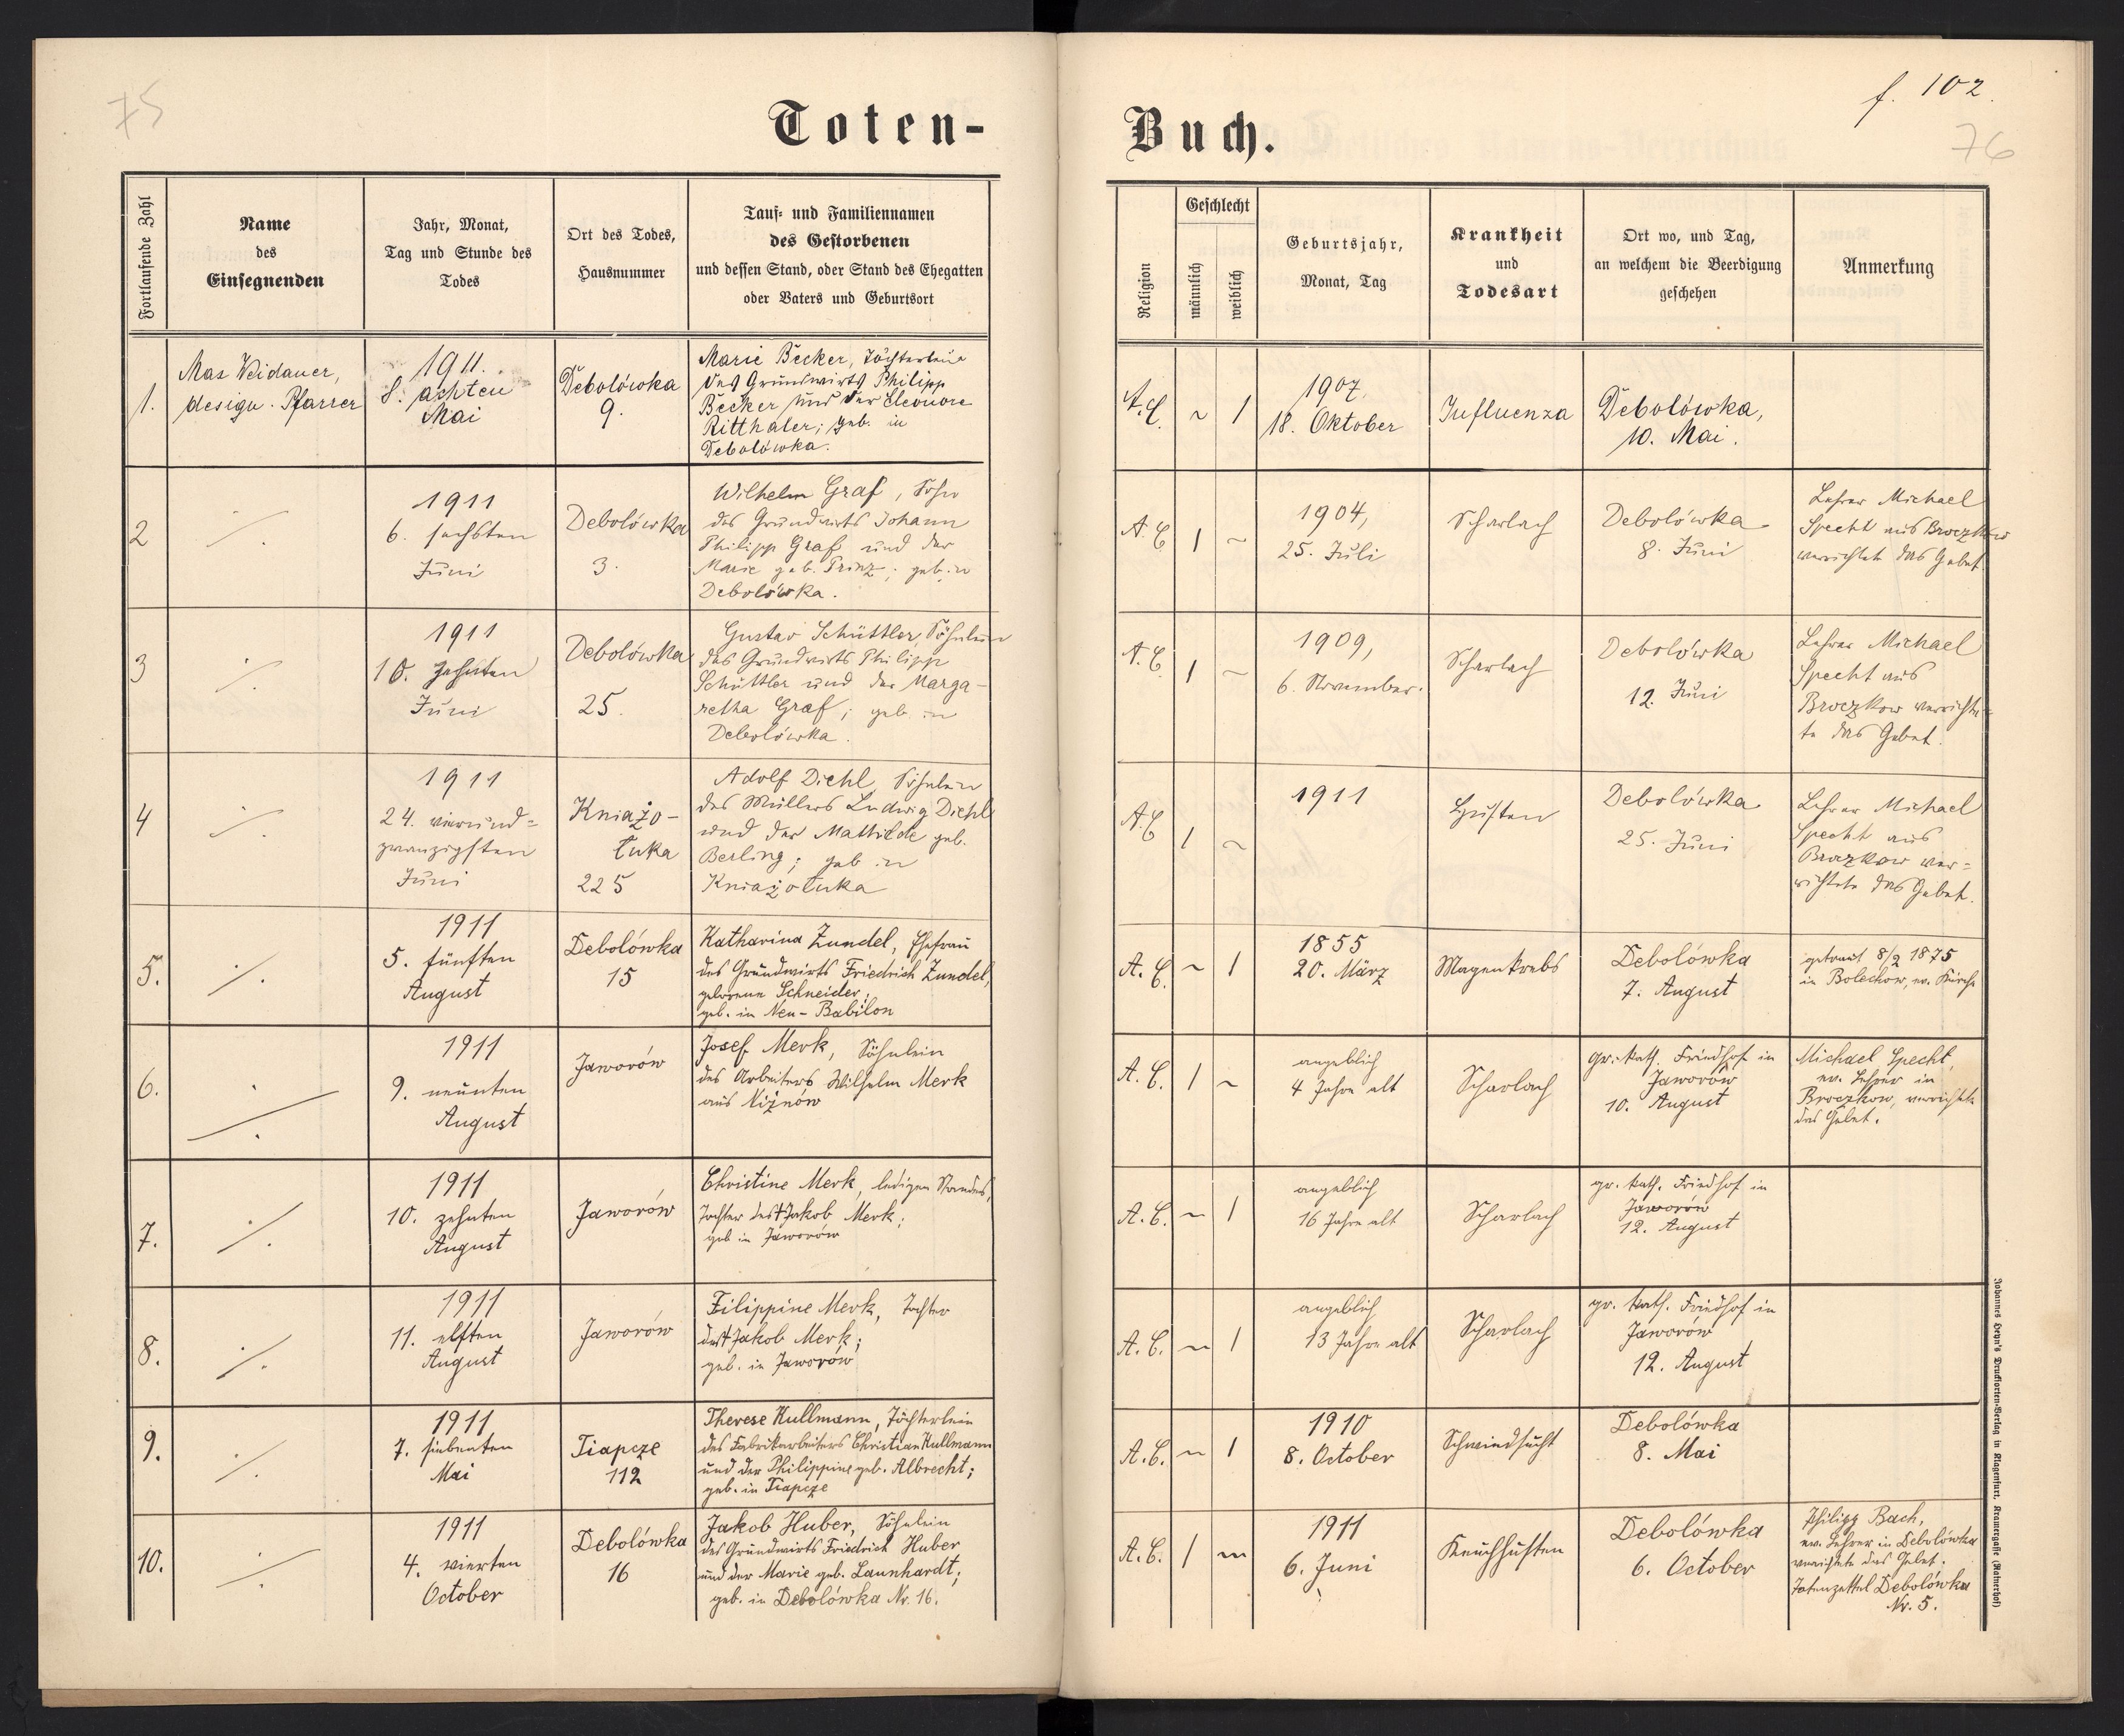 75
Toten-
Buch.
f. 102.
76
Fortlaufende Zahl
Name
des
Einsegnenden
Jahr, Monat,
Tag und Stunde des
Todes
Ort des Todes,
Hausnummer
Tauf- und Familiennamen
des Gestorbenen
und dessen Stand, oder Stand des Ehegatten
oder Vaters und Geburtsort
Religion
Geschlecht
männlich
weiblich
Geburtsjahr,
Monat, Tag
Krankheit
und
Todesart
Ort wo, und Tag,
an welchem die Beerdigung
geschehen
Anmerkung
1.
Max Weidauer,
design. Pfarrer
1911.
8. achten
Mai
Debolówka
9.
Marie Becker, Töchterlein
des Grundwirts Philipp
Becker und der Eleonore
Ritthaler; geb. in
Debolówka.
A.C.
~
1
1907.
18. Oktober
Influenza
Debolówka,
10. Mai.
2
·/.
1911
6. sechsten
Juni
Debolówka
3.
Wilhelm Graf, Sohn
des Grundwirts Johann
Philipp Graf und der
Marie geb. Prinz; geb. in
Debolówka.
A.C
1
~
1904,
25. Juli
Scharlach
Debolówka
8. Juni
Lehrer Michael
Specht aus Broczków
verrichtete das Gebet
3
·/.
1911
10. zehnten
Juni
Debolówka
25.
Gustav Schüttler, Söhnlein
des Grundwirts Philipp
Schüttler und der Marga-
retha Graf; geb. in
Debolówka.
A.C
1
~
1909,
6. November.
Scharlach
Debolówka
12. Juni
Lehrer Michael
Specht aus
Broczkow verrichte-
te das Gebet.
4
·/.
1911
24. vierund=
zwanzigsten
Juni
Kniażo-
łuka
225
Adolf Diehl, Söhnlein
des Müllers Ludwig Diehl
und der Mathilde geb.
Berling; geb. in
Kniażołuka
A.C
1
~
1911
Husten
Debolówka
25. Juni
Lehrer Michael
Specht aus
Broczkow ver=
richtete das Gebet.
5.
·/.
1911
5. fünften
August
Debolówka
15
Katharina Zundel, Ehefrau
des Grundwirts Friedrich Zundel,
geborene Schneider,
geb. in Neu-Babilon
A.C.
~
1
1855
20. März
Magenkrebs
Debolówka
7. August
getraut 8/2 1875
in Bolechow, ev. Kirche
6.
·/.
1911
9. neunten
August
Jaworów
Josef Merk, Söhnlein
des Arbeiters Wilhelm Merk
aus Niżnów
A.C.
1
~
angeblich
4 Jahre alt
Scharlach
gr.-kath. Friedhof in
Jaworów
10. August
Michael Specht,
ev. Lehrer in
Broczkow, verrichtete
das Gebet.
7.
·/.
1911
10. zehnten
August
Jaworów
Christine Merk, ledigen Standes,
Tochter des † Jakob Merk;
geb in Jaworów
A.C.
~
1
angeblich
16 Jahre alt
Scharlach
gr. kath. Friedhof in
Jaworów
12. August
8.
·/.
1911
11. elften
August
Jaworów
Filippine Merk, Tochter
des † Jakob Merk;
geb. in Jaworów
A.C.
~
1
angeblich
13 Jahre alt
Scharlach
gr. kath. Friedhof in
Jaworów
12. August
9.
·/.
1911
7. siebenten
Mai
Tiapcze
112
Therese Kullmann, Töchterlein
des Fabrikarbeiters Christian Kullmann
und der Philippine geb. Albrecht;
geb. in Tiapcze
A.C.
~
1
1910
8. October
Schwindsucht
Debolówka
8. Mai
10.
·/.
1911
4. vierten
October
Debolówka
16
Jakob Huber, Söhnlein
des Grundwirts Friedrich Huber
und der Marie geb. Launhardt;
geb. in Debolówka Nr. 16.
A.C.
1
~
1911
6. Juni
Keuchhusten
Debolówka
6. October
Philipp Bach,
ev. Lehrer in Debolówka
verrichtete das Gebet.
Totenzettel Debolówka
Nr. 5.
Johannes Heyn's Drucksorten-Verlag in Klagenfurt, Kramergasse (Rainerhof)